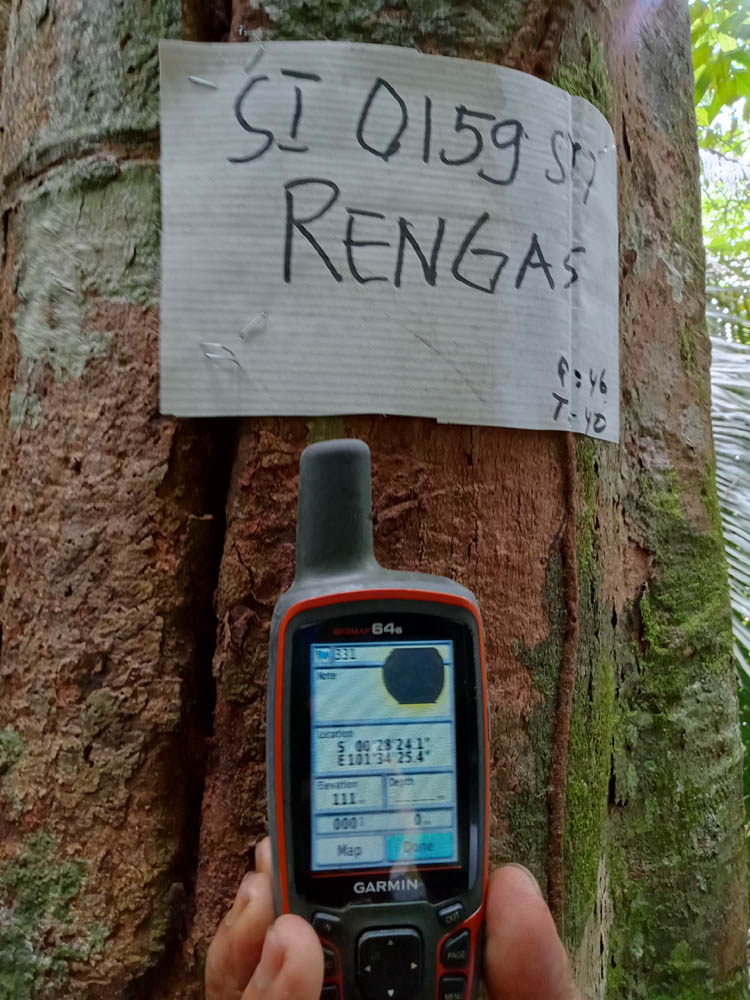 SI 0159
RENGAS
T = 40
GPSMAP 64s
331
Note
Location
S 00°28'24.1"
E101°34'25.4"
Elevation
Depth
111 m
000°
0 m
Map
Done
GARMIN
IN
OUT
PAGE
MENU